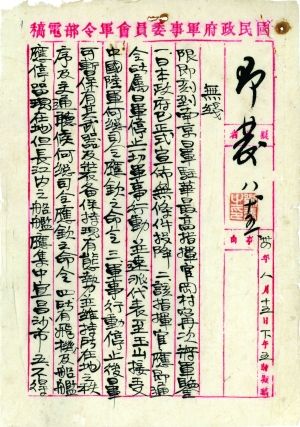 國民政府軍事委員會軍令部電稿
即發 八十五
年八月十五日下午五時擬稿
無綫
限即刻到南京日軍駐華最高指揮官岡村寧次將軍鑒
一日本政府已正式宣佈無條件投降二該指揮官應即通
令所屬日軍停止一切軍事行動並速派代表至玉山接受
中國陸軍何總司令應欽之命令三軍事行動停止後日軍
可暫保有其武器及裝備保持現有態勢並維持所在地之秩
序及交通聽候何總司令應欽之命令四所有飛機及船艦
應停留現在地但長江內之船艦應集中宜昌沙市五不得